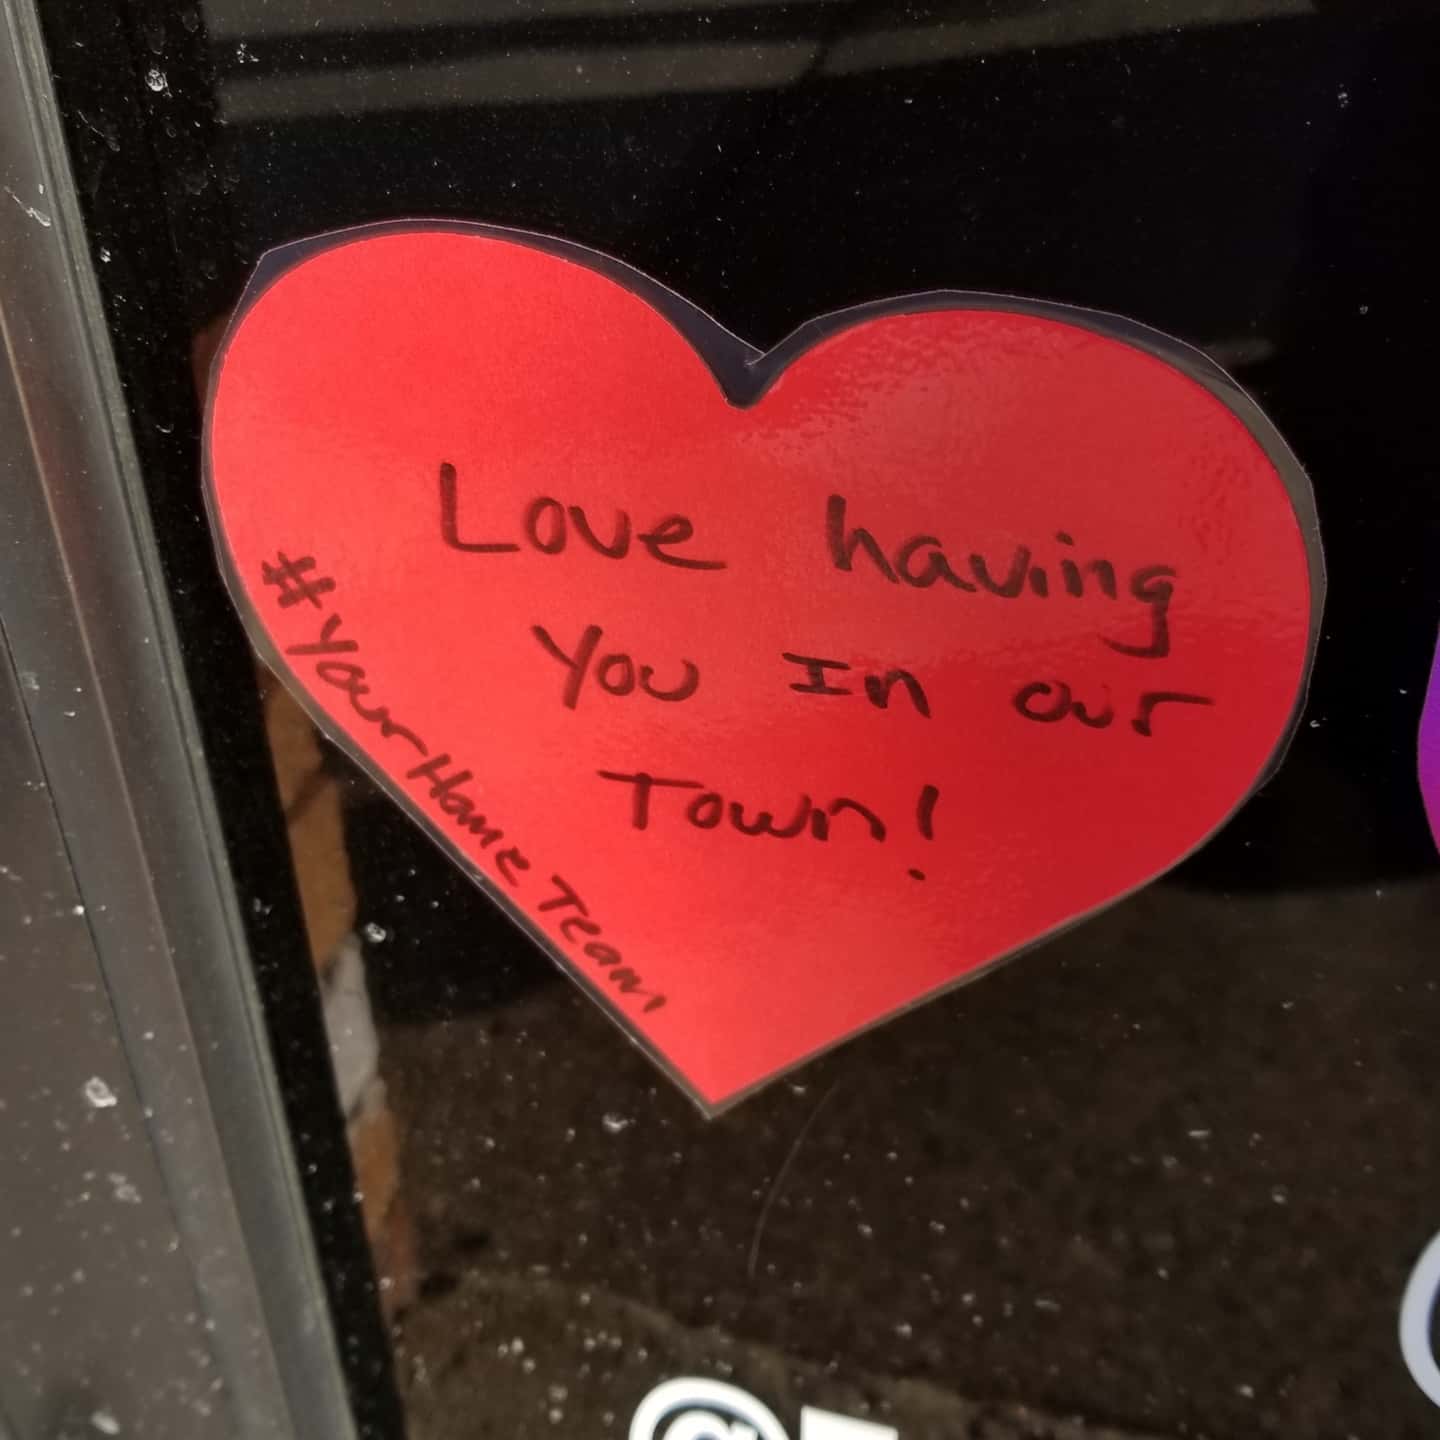 Love having
You In our
Town!
#YourHomeTeam
@